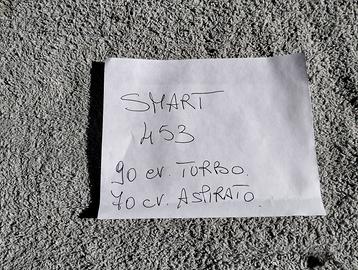 SMART
453
90 cv. TURBO.
70 cv. ASPIRATO.